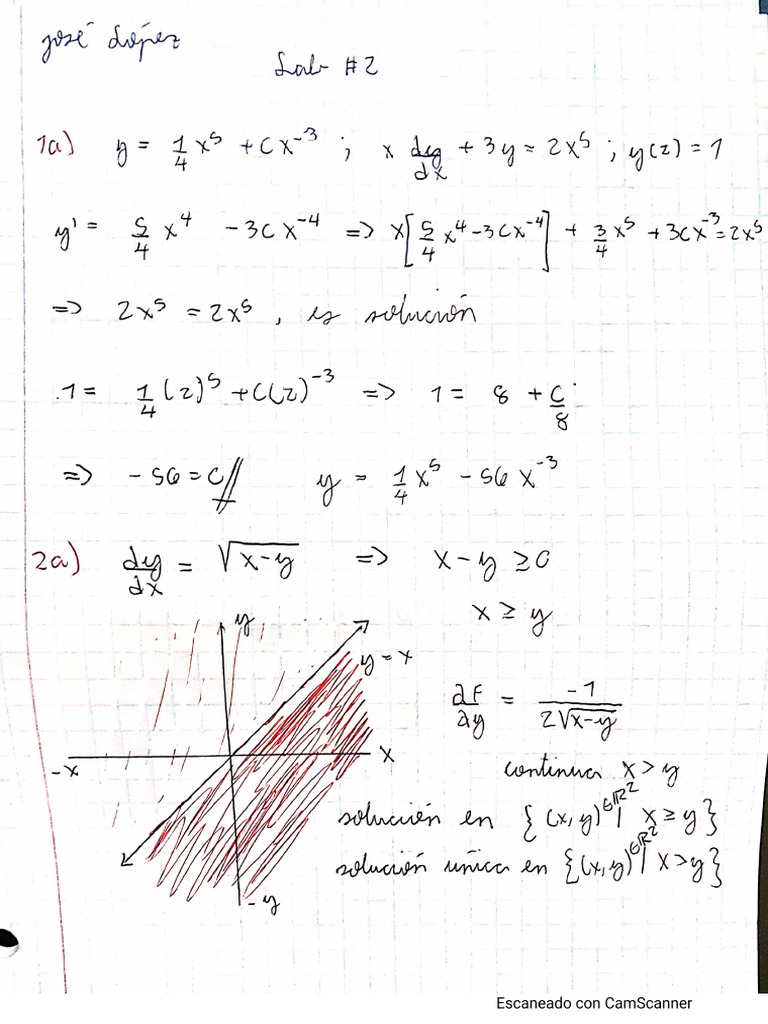 José López
Lab #2
1a) y = 1/4 x⁵ + Cx⁻³ ; x dy/dx + 3y = 2x⁵ ; y(2) = 1
y' = 5/4 x⁴ - 3Cx⁻⁴ => x[5/4 x⁴ - 3Cx⁻⁴] + 3/4 x⁵ + 3Cx⁻³ = 2x⁵
=> 2x⁵ = 2x⁵ , es solución
1 = 1/4 (2)⁵ + C(2)⁻³ => 1 = 8 + C/8
=> -56 = C// y = 1/4 x⁵ - 56x⁻³
2a) dy/dx = √(x-y) => x - y ≥ 0
x ≥ y
y
y = x
-x
x
-y
∂F/∂y = -1/(2√(x-y))
continua x > y
solución en {(x,y)∈ℝ² | x ≥ y}
solución única en {(x,y)∈ℝ² | x > y}
Escaneado con CamScanner